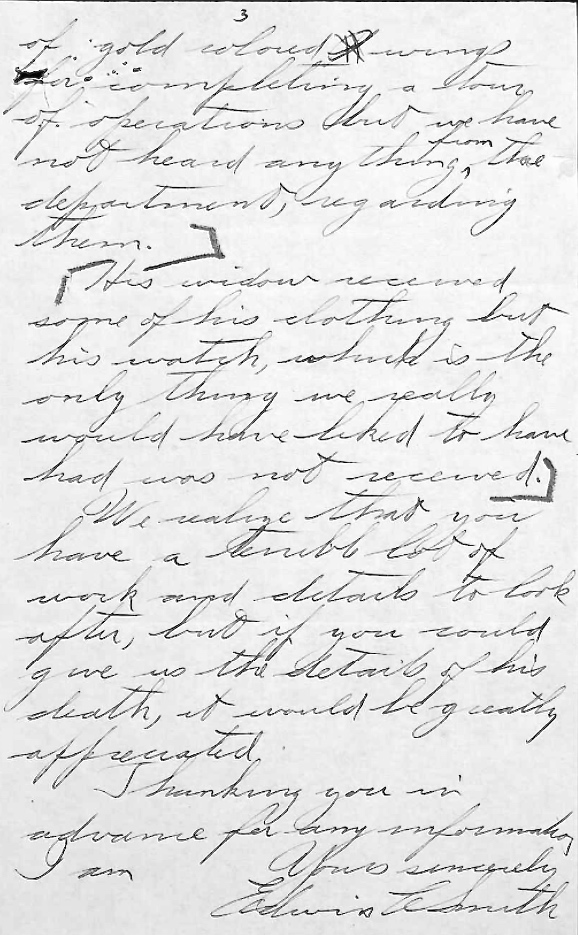 3
of gold colored wings
for completing a tour
of operations but we have
not heard anything, from the
department, regarding
them.
His widow received
some of his clothing but
his watch, which is the
only thing we really
would have liked to have
had was not received.
We realize that you
have a terrible lot of
work and details to look
after, but if you could
give us the details of his
death, it would be greatly
appreciated.
Thanking you in
advance for any information
I am Yours sincerely
Edwin C Smith